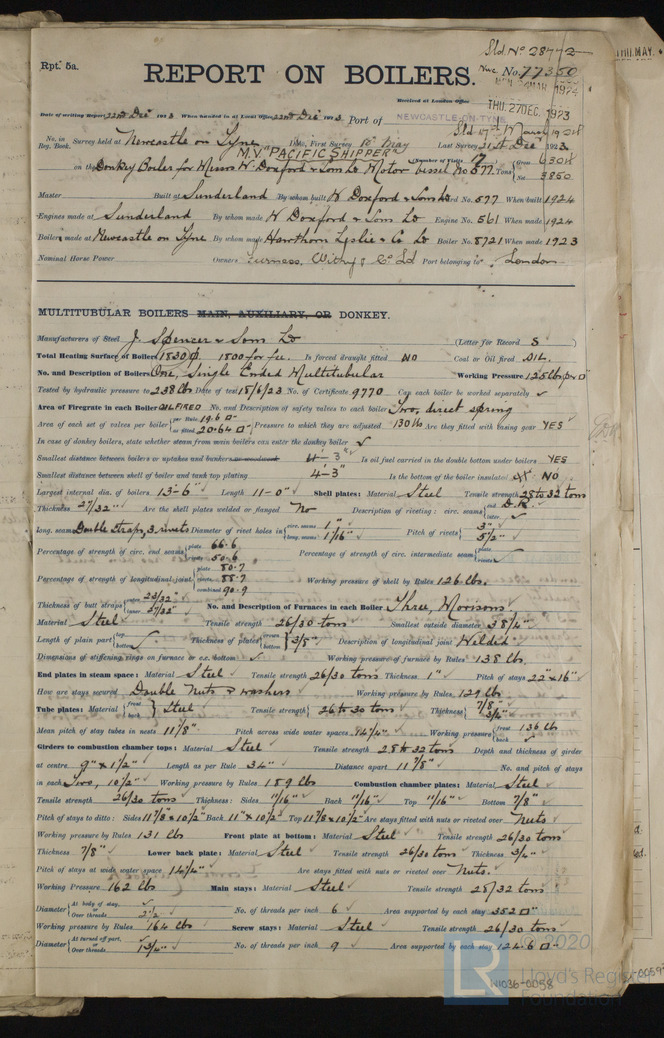 Sld. No 28772
Rpt. 5a.
REPORT ON BOILERS.
Nwc. No. 77350
Received at London Office
THU. 27 DEC. 1923
Date of writing Report 22nd Dec 1923 When handed in at Local Office 22nd Dec 1923 Port of NEWCASTLE-ON-TYNE
No. in Reg. Book. Survey held at Newcastle on Tyne Date, First Survey 10th May Last Survey 21st Dec 1923
M.V. "PACIFIC SHIPPER" (Number of Visits 17)
on the Donkey Boiler for Messrs W. Doxford & Sons Ld Motor Vessel No 577 Tons Gross 6304 Net 3850
Master Built at Sunderland By whom built W Doxford & Sons Ld Yard No. 577 When built 1924
Engines made at Sunderland By whom made W Doxford & Sons Ld Engine No. 561 When made 1924
Boilers made at Newcastle on Tyne By whom made Hawthorn Leslie & Co Ld Boiler No. 8721 When made 1923
Nominal Horse Power Owners Furness, Withy & Co Ld Port belonging to London
MULTITUBULAR BOILERS MAIN, AUXILIARY, OR DONKEY.
Manufacturers of Steel J. Spencer & Sons Ld (Letter for Record S)
Total Heating Surface of Boilers 1830 1800 for fee. Is forced draught fitted NO Coal or Oil fired OIL.
No. and Description of Boilers One, Single Ended Multitubular Working Pressure 125 lbs per □"
Tested by hydraulic pressure to 238 lbs Date of test 15/6/23 No. of Certificate 9770 Can each boiler be worked separately ✓
Area of Firegrate in each Boiler OIL FIRED No. and Description of safety valves to each boiler Two, direct spring
Area of each set of valves per boiler per Rule 19.6 □" as fitted 20.64 □" Pressure to which they are adjusted 130 lbs Are they fitted with easing gear YES
In case of donkey boilers, state whether steam from main boilers can enter the donkey boiler ✓
Smallest distance between boilers or uptakes and bunkers or woodwork Is oil fuel carried in the double bottom under boilers YES
Smallest distance between shell of boiler and tank top plating 4'-3" Is the bottom of the boiler insulated NO
Largest internal dia. of boilers 13'-6" Length 11'-0" Shell plates: Material Steel Tensile strength 28 to 32 tons
Thickness 27/32" Are the shell plates welded or flanged No Description of riveting: circ. seams end D.R. inter. ✓
long. seams Double straps, 3 rivets Diameter of rivet holes in circ. seams 1" long. seams 1 1/16" Pitch of rivets 3" 5 1/2"
Percentage of strength of circ. end seams plate 66.6 rivets 50.6 Percentage of strength of circ. intermediate seam plate rivets ✓
Percentage of strength of longitudinal joint plate 80.7 rivets 88.7 combined 90.9 Working pressure of shell by Rules 126 lbs.
Thickness of butt straps outer 23/32" inner 27/32" No. and Description of Furnaces in each Boiler Three, Morisons
Material Steel Tensile strength 26/30 tons Smallest outside diameter 38 1/4"
Length of plain part top bottom ✓ Thickness of plates crown bottom 3/8" Description of longitudinal joint Welded
Dimensions of stiffening rings on furnace or c.c. bottom ✓ Working pressure of furnace by Rules 138 lbs
End plates in steam space: Material Steel Tensile strength 26/30 tons Thickness 1" Pitch of stays 22" x 16"
How are stays secured Double Nuts & washers Working pressure by Rules 129 lbs
Tube plates: Material front back Steel Tensile strength 26 to 30 tons Thickness 7/8" 3/4"
Mean pitch of stay tubes in nests 11 7/8" Pitch across wide water spaces 14 1/4" Working pressure front 136 lbs back ✓
Girders to combustion chamber tops: Material Steel Tensile strength 28 to 32 tons Depth and thickness of girder
at centre 9" x 1 1/2" Length as per Rule 34" Distance apart 11 7/8" No. and pitch of stays
in each Two, 10 1/2" Working pressure by Rules 189 lbs Combustion chamber plates: Material Steel
Tensile strength 26/30 tons Thickness: Sides 11/16" Back 11/16" Top 11/16" Bottom 7/8"
Pitch of stays to ditto: Sides 11 7/8 x 10 1/2" Back 11" x 10 1/2" Top 11 7/8 x 10 1/2" Are stays fitted with nuts or riveted over Nuts
Working pressure by Rules 131 lbs Front plate at bottom: Material Steel Tensile strength 26/30 tons
Thickness 7/8" Lower back plate: Material Steel Tensile strength 26/30 tons Thickness 3/4"
Pitch of stays at wide water space 14 1/4" Are stays fitted with nuts or riveted over Nuts.
Working Pressure 162 lbs Main stays: Material Steel Tensile strength 28/32 tons
Diameter At body of stay, or Over threads 2 1/2 No. of threads per inch 6 Area supported by each stay 352 □"
Working pressure by Rules 164 lbs Screw stays: Material Steel Tensile strength 26/30 tons
Diameter At turned off part, or Over threads 1 3/4" No. of threads per inch 9 Area supported by each stay 124.6 □"
© 2020
LR Lloyd's Register Foundation
W1036-0058